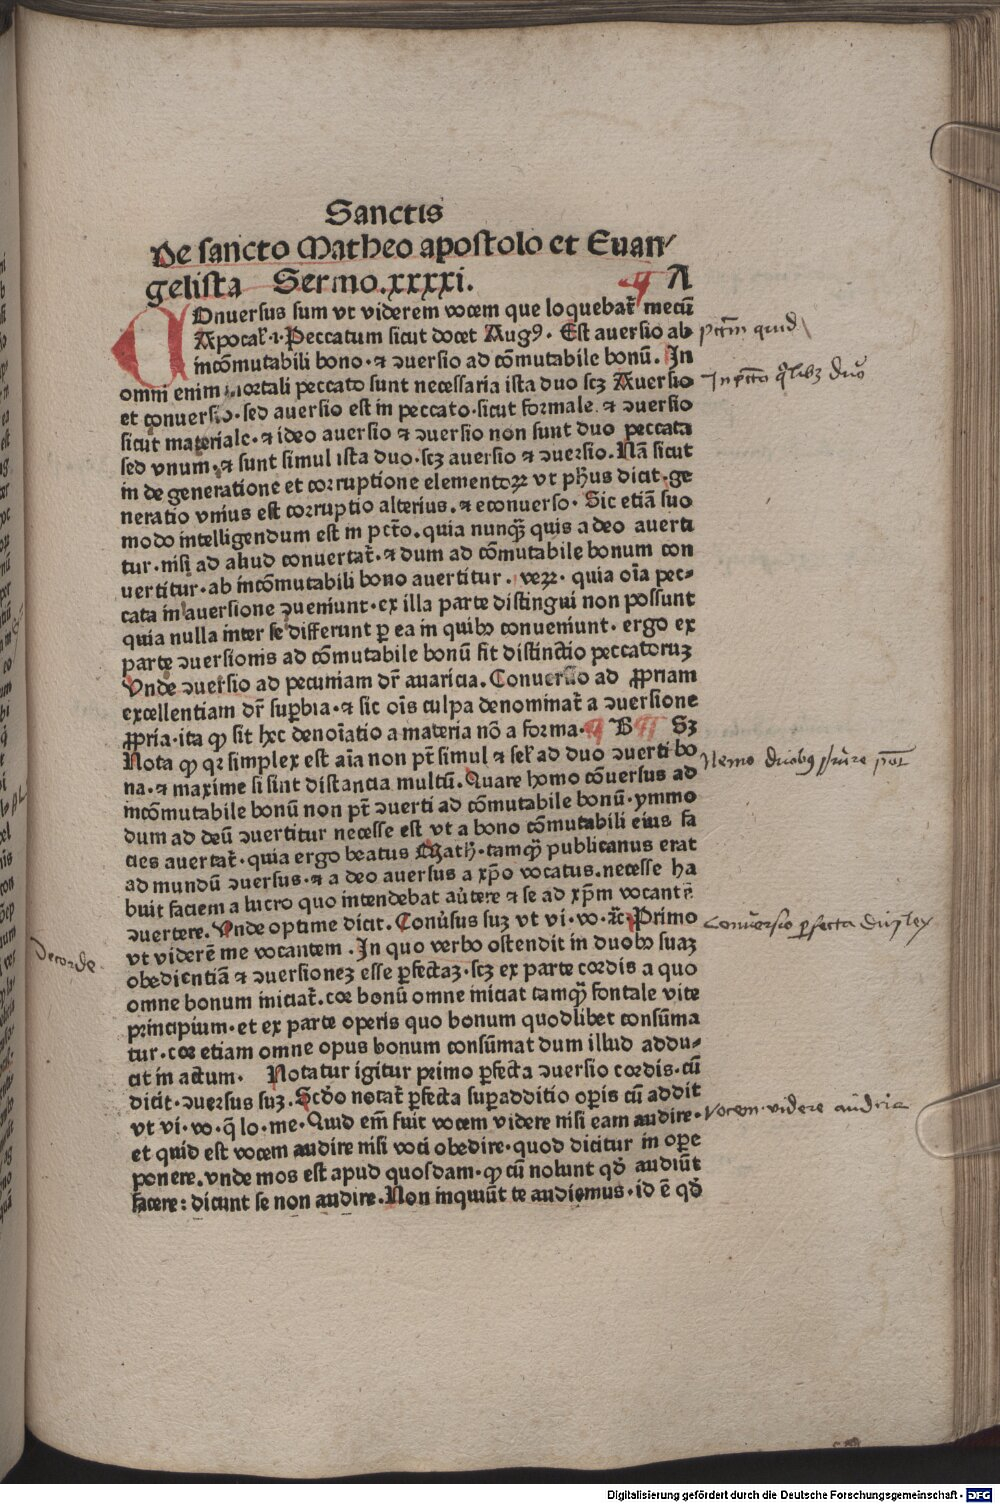 Sanctis
De sancto Matheo apostolo et Euan⸗
gelista Sermo.xxxxi. ¶ A
COnuersus sum vt viderem vocem que loquebat᷑ mecū
Apocal᷑.1.Peccatum sicut docet Augꝰ. Est auersio ab
incōmutabili bono.⁊ ↄuersio ad cōmutabile bonū. In
omni enim mortali peccato sunt necessaria ista duo scꝫ Auersio
et conuersio.sed auersio est in peccato.sicut formale.⁊ ↄuersio
sicut materiale.⁊ ideo auersio ⁊ ↄuersio non sunt duo peccata
sed vnum.⁊ sunt simul ista duo.scꝫ auersio ⁊ ↄuersio. Nā sicut
in de generatione et corruptione elementoꝝ vt ph̄us dicit.ge
neratio vnius est corruptio alterius.⁊ econuerso. Sic etiā suo
modo intelligendum est in pct̄o.quia nunqꝫ quis a deo auerti
tur.nisi ad aliud conuertat᷑.⁊ dum ad cōmutabile bonum con
uertitur.ab incōmutabili bono auertitur. veꝝ. quia oīa pec⸗
cata in auersione ↄueniunt.ex illa parte distingui non possunt
quia nulla inter se differunt ꝑ ea in quibꝰ conueniunt. ergo ex
parte ↄuersionis ad cōmutabile bonū fit distinctio peccatoruꝫ
Vnde ↄuersio ad pecuniam dr̄ auaricia. Conuersio ad ꝓpriam
excellentiam dr̄ suꝑbia.⁊ sic oīs culpa denominat᷑ a ↄuersione
ꝓpria.ita ꝙ sit hec denoīatio a materia nō a forma. ¶ B ¶ Sꝫ
Nota ꝙ qꝛ simplex est aīa non pt̄ simul ⁊ sel᷑ ad duo ↄuerti bo
na.⁊ maxime si sint distancia multū. Quare homo cōuersus ad
incōmutabile bonū non pt̄ ↄuerti ad cōmutabile bonū.ymmo
dum ad deū ↄuertitur necesse est vt a bono cōmutabili eius fa
cies auertat᷑.quia ergo beatus Math̄.tamqꝫ publicanus erat
ad mundū ↄuersus.⁊ a deo auersus a xp̄o vocatus.necesse ha
buit faciem a lucro quo intendebat au̇tere ⁊ se ad xp̄m vocantē
ↄuertere. Vnde optime dicit. Conu̇sus suꝫ vt vi.vo.⁊c̄ Primo
vt viderē me vocantem. In quo verbo ostendit in duobꝰ suaꝫ
obedientiā ⁊ ↄuersionez esse ꝑfectaꝫ.scꝫ ex parte cordis a quo
omne bonum iniciat᷑.cor bonū omne iniciat tamqꝫ fontale vite
principium.et ex parte operis quo bonum quodlibet consūma
tur.cor etiam omne opus bonum consūmat dum illud addu⸗
cit in actum. Notatur igitur primo ꝑfecta ↄuersio cordis.cū
dicit.ↄuersus suꝫ. Scd̄o notat᷑ ꝑfecta suꝑadditio oꝑis cū addit
vt vi.vo.q̄ lo.me. Quid em̄ fuit vocem videre nisi eam audire.
et quid est vocem audire nisi voci obedire.quod dicitur in oꝑe
ponere.vnde mos est apud quosdam.ꝙ cū nolunt qd̄ audiūt
facere: dicunt se non audire. Non inquiūt te audiemus.id ē qd̄
pctm̄ quid
In pctō q̄libꝫ duo
Nemo duobꝰ s̄uire pōt
Conuersio ꝑfecta duplex
Decorde
Vocem videre audire
Digitalisierung gefördert durch die Deutsche Forschungsgemeinschaft - DFG